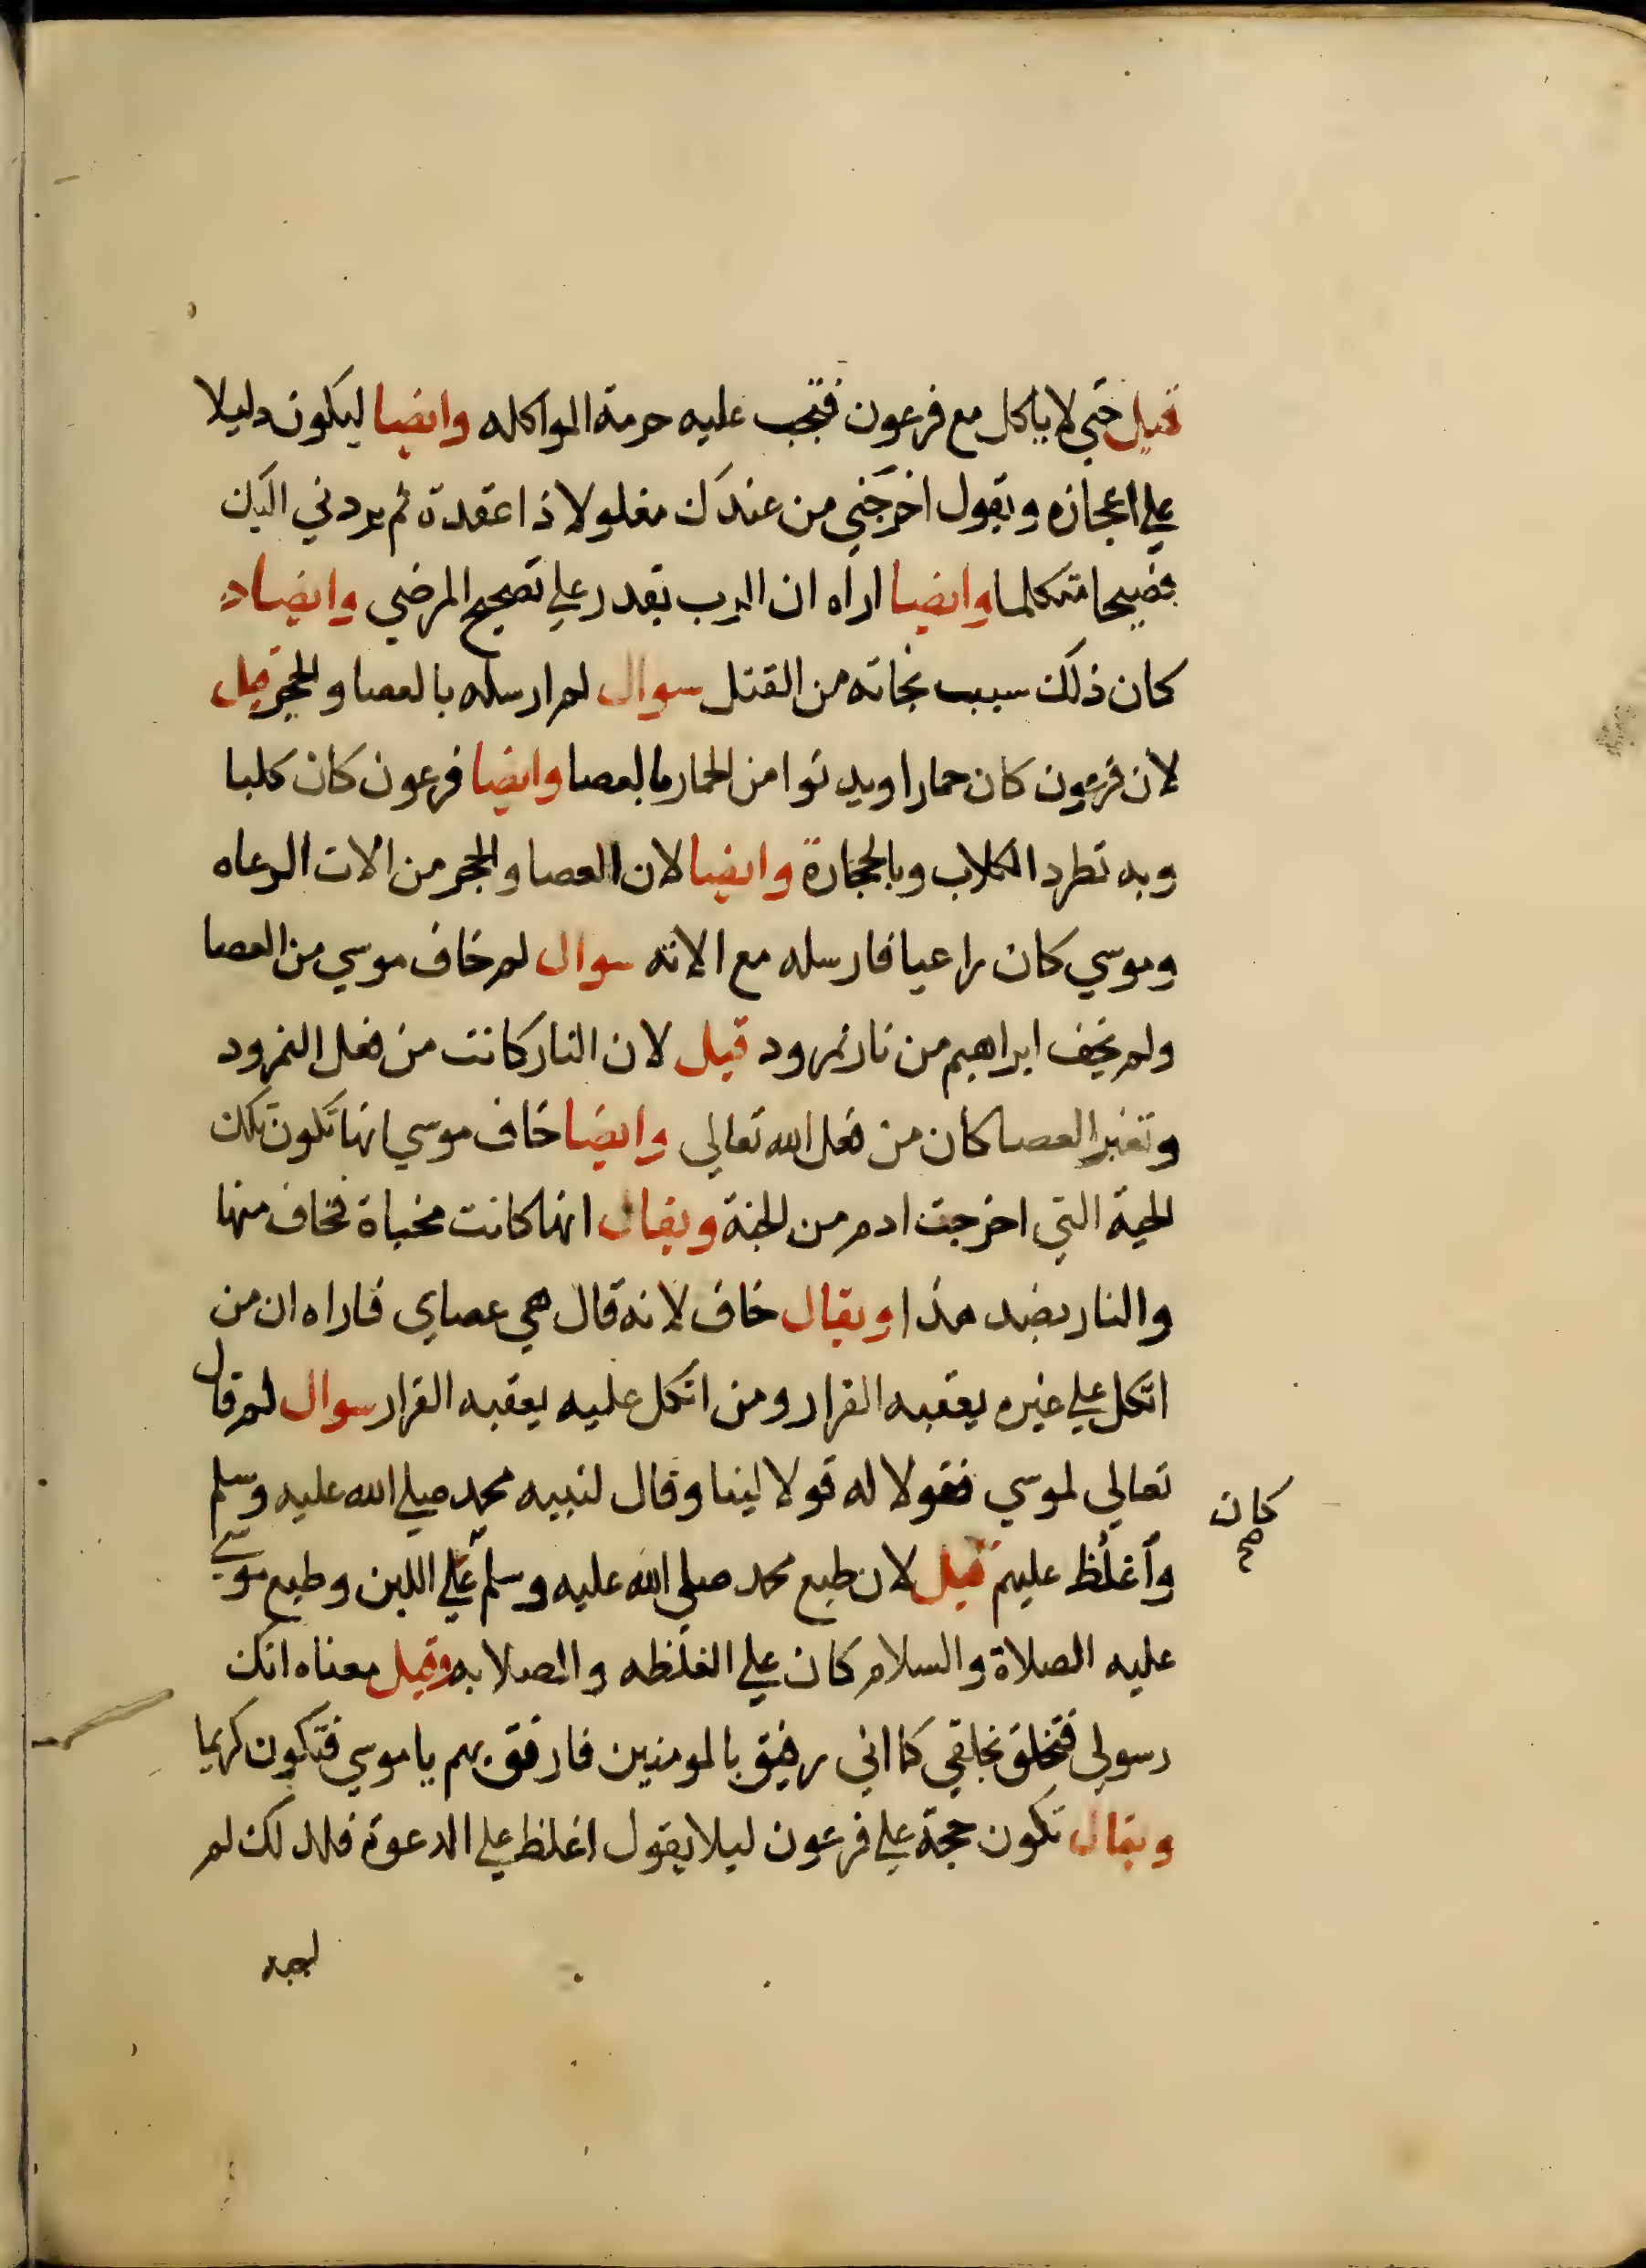 قيل حتى لا ياكل مع فرعون فتجب عليه حرمة المواكله وايضا ليكون دليلا
علي اعجازه ويقول اخرجني من عندك مغلولا ذا عقدة ثم يردني اليك
فصيحا متكلما وايضا اراه ان الرب يقدر علي تصحيح المرضي وايضاد
كان ذلك سبب نجاته من القتل سوال لم ارسله بالعصا والحجر قيل
لان فرعون كان حمارا ويدنوا من الحمار بالعصا وايضا فرعون كان كلبا
وبه تطرد الكلاب وبالحجارة وايضا لان العصا والحجر من الات الرعاه
وموسي كان راعيا فارسله مع الاته سوال لم خاف موسي من العصا
ولم يخف ابراهيم من نار نمرود قيل لان النار كانت من فعل النمرود
وتغير العصا كان من فعل الله تعالي وايضا خاف موسي انها تكون تلك
الحية التي اخرجت ادم من الجنة ويقال انها كانت مخباة فخاف منها
والنار بضد هذا ويقال خاف لانه قال هي عصاي فاراه ان من
اتكل علي غيره يعقبه الفرار ومن اتكل عليه يعقبه القرار سوال لم قال
تعالي لموسي فقولا له قولا لينا وقال لنبيه محمد صلي الله عليه وسلم
كان صح
وأغلُظ عليهم قيل لان طبع محمد صلي الله عليه وسلم علي اللين وطبع موسي
عليه الصلاة والسلام كان علي الغلظه والصلابه وقيل معناه انك
رسولي فتخلق بخلقي كما اني رفيق بالمومنين فارفق بهم يا موسي فتكون كريما
ويقال تكون حجة علي فرعون ليلا يقول اغلظ علي الدعوة فلذلك لم
اجبه